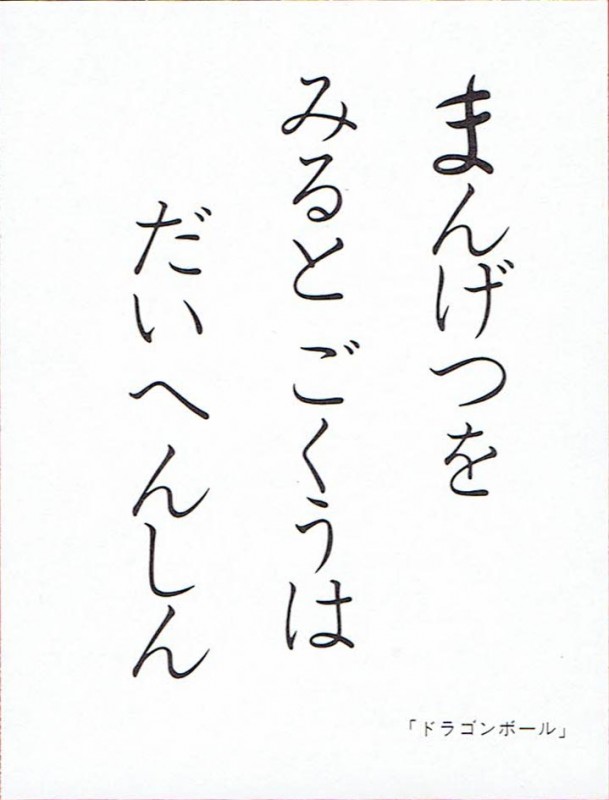 まんげつを
みると ごくうは
だいへんしん
「ドラゴンボール」